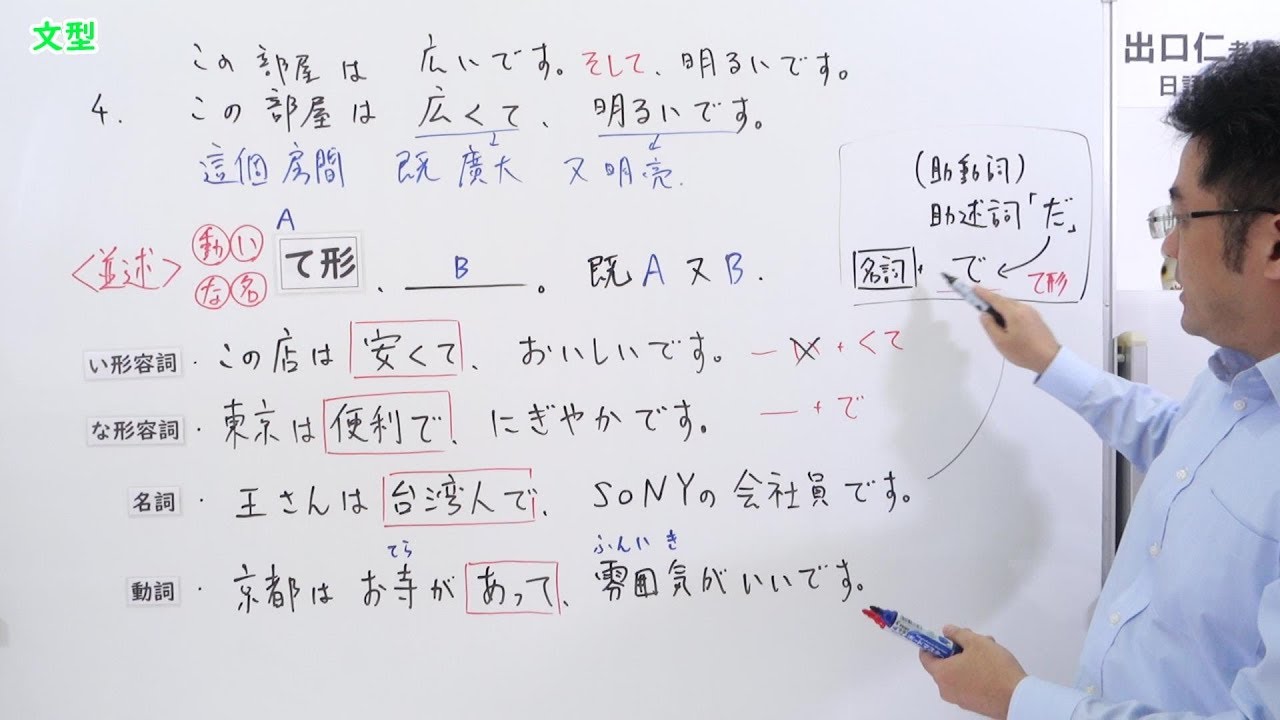 文型
出口仁老
日語
この部屋は 広いです。そして、明るいです。
4. この部屋は 広くて、明るいです。
這個房間 既廣大 又明亮.
(助動詞)
助述詞「だ」
名詞 + で て形
A
<並述> 動 い な 名 て形、 B 。 既 A 又 B.
い形容詞・この店は 安くて、おいしいです。 ーい + くて
な形容詞・東京は 便利で、にぎやかです。 ー + で
名詞・王さんは 台湾人で、SONYの会社員です。
てら ふんいき
動詞・京都は お寺が あって、雰囲気がいいです。